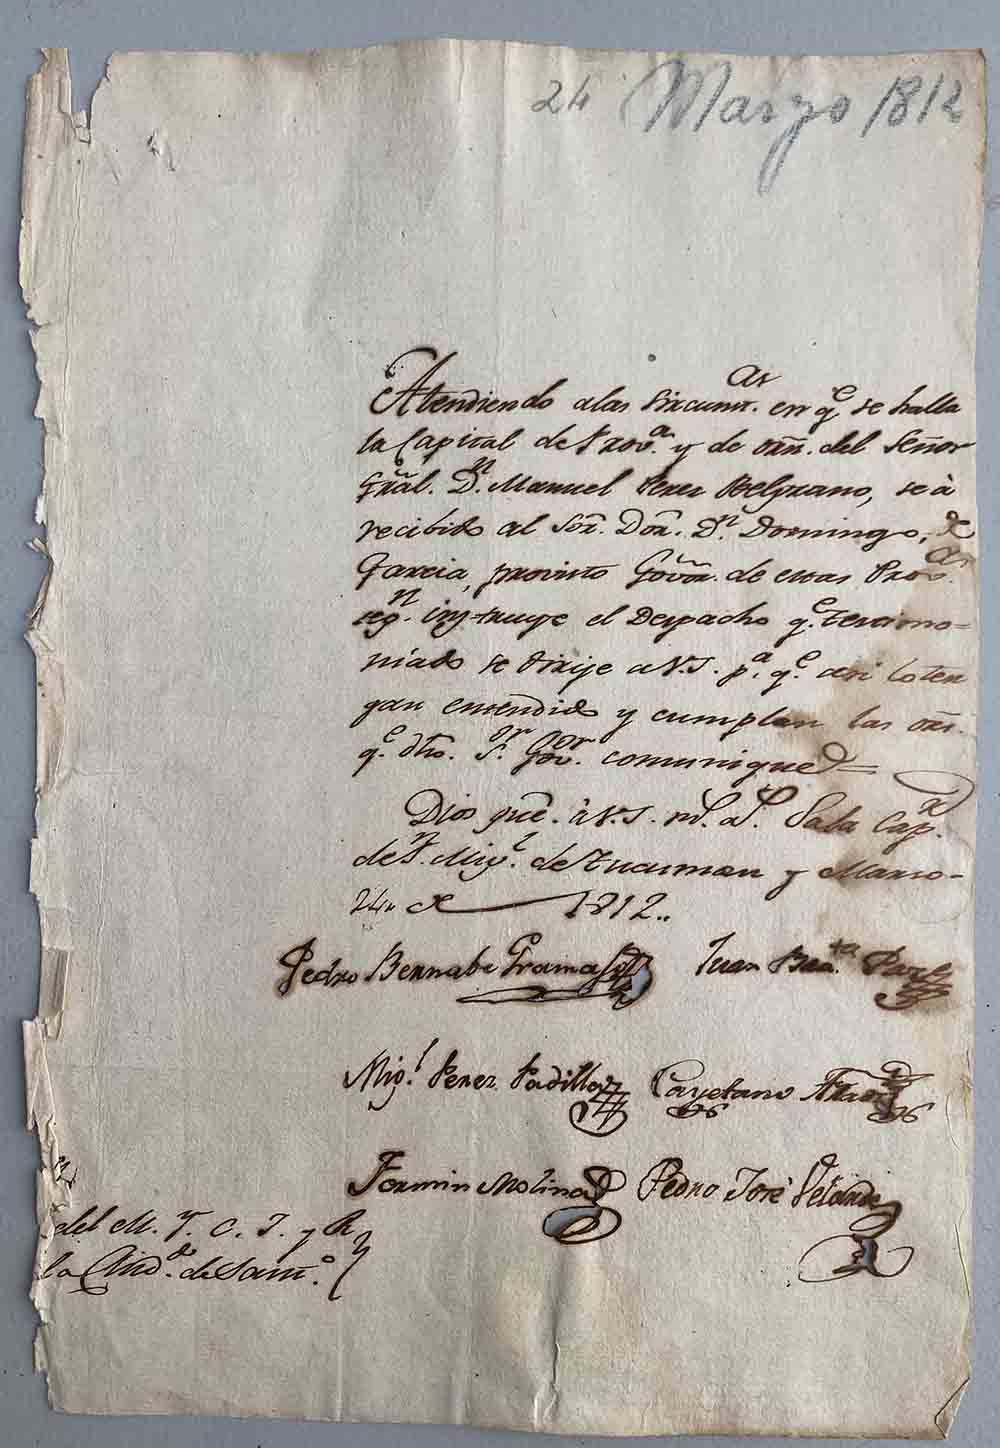 24 Marzo 1812
Atendiendo alas Sircunst.as en q.e se halla
la Capital de Prov.a y de orn. del Señor
Gral. D.n Manuel Perez Belgrano, se à
recibido al Sor. Dor. D.n Domingo,
Garcia, provisto Govor. de estas Prov.as
seg.n instruye el Despacho q.e testimo=
niado se dirije a V.S. p.a q.e asi lo ten
gan entendido y cumplan las orns.
q.e dho. S.or Gov.or comunique=
Dios gue. à V.S. ms. as. Sala Cap.r
de S.n Mig.l de Tucuman y Marso-
24 de 1812..
Pedro Bernabe Grama Juan Bau.ta Paz
Mig.l Perez Padilla Cayetano Araoz
Fermin Molina Pedro José Velarde
del M. Y. C. J. y R.
la Ciud.d de Sant.o